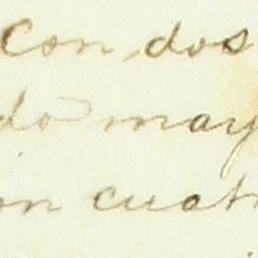 Con dos
do may
on cuat